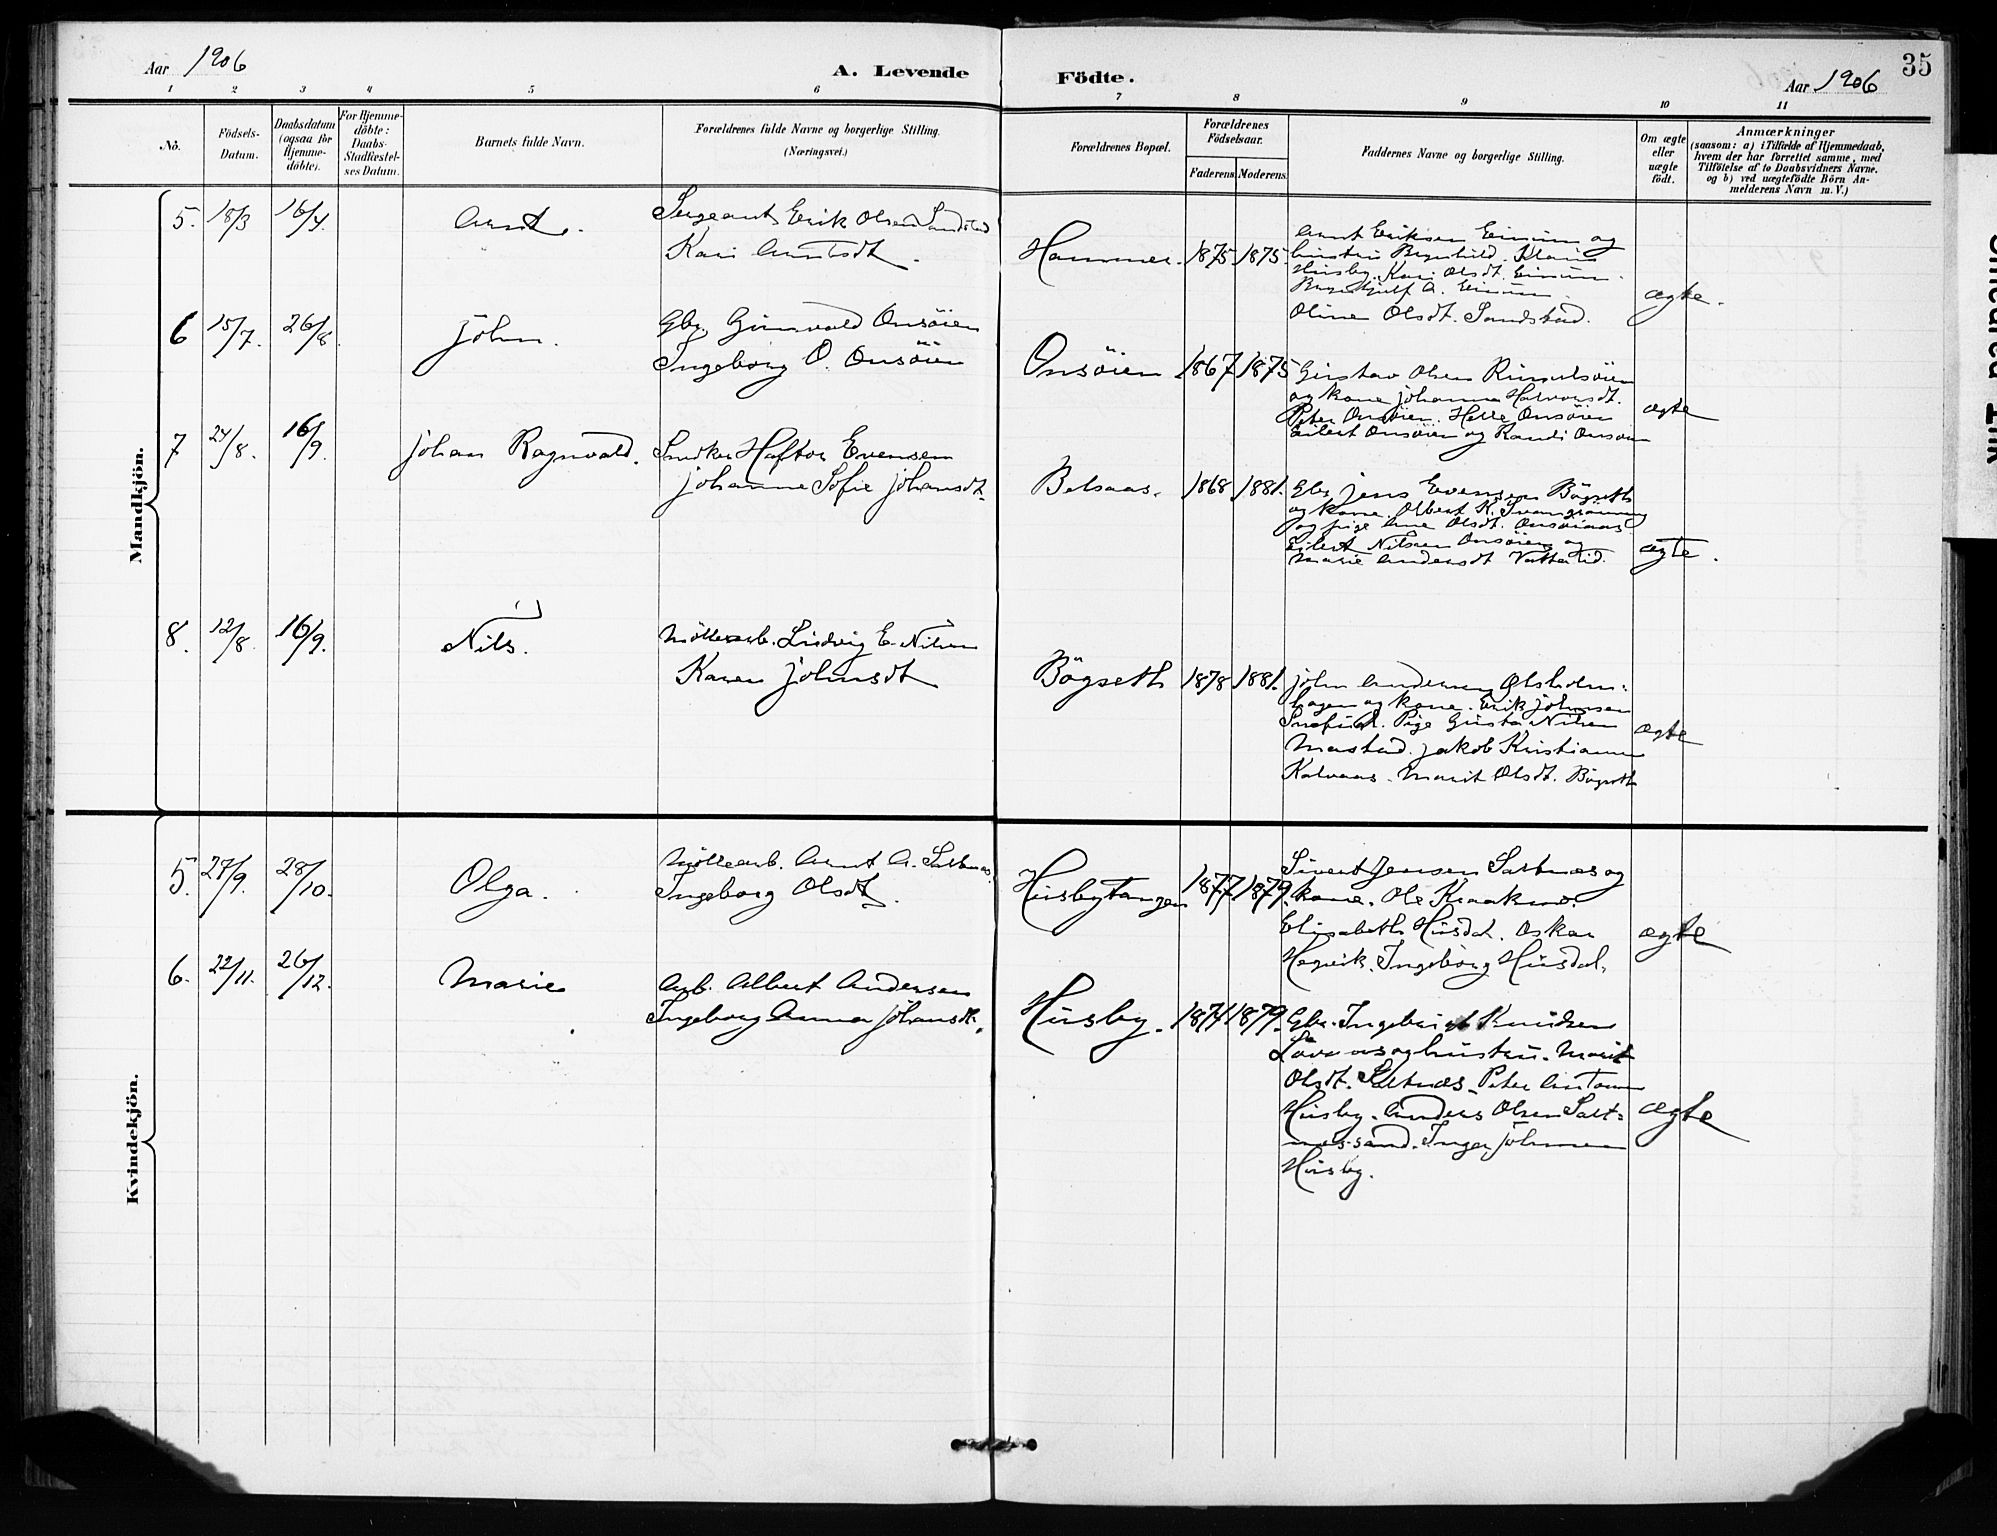 Aar 1906
A. Levende
Födte.
35
Aar 1906
1 2 3 4 5 6 7 8 9 10 11
No.
Födsels-
Datum.
Daabsdatum
(ogsaa for
Hjemme-
döbte).
For Hjemme-
döbte:
Daabs-
Stadfæstel-
ses Datum.
Barnets fulde Navn.
Forældrenes fulde Navne og borgerlige Stilling.
(Næringsvei.)
Forældrenes Bopæl.
Forældrenes
Födselsaar.
Faderens. Moderens.
Faddernes Navne og borgerlige Stilling.
Om ægte
eller
uægte
födt.
Anmærkninger
(saasom: a) i Tilfælde af Hjemmedaab,
hvem der har forrettet samme, med
Tilföielse af to Daabsvidners Navne,
og b) ved uægtefödte Börn An-
melderens Navn m. V.)
Mandkjön.
5. 18/3 16/4. Arnt. Sergeant Erik Olsen Sandstad
Kari Arntsdt.
Hammer. 1875 1875.
Arnt Eriksen Einum og
hustru Ragnhild. Klaus
Husby. Kari Olsdt. Einum.
A. Einum.
Oline Olsdt. Sandstad.
ægte.
6 15/7. 26/8. John. Gbr. Gunvald Onsöien
Ingeborg O. Onsöien
Onsöien 1867 1875
Gustav Olsen
og kone Johanna Halvorsdt.
Peter Onsöien. Onsöien
Eilert Onsöien og Randi Onsöien
ægte
7 24/8. 16/9. Johan Ragnvald. Snedker Haftor Evensen
Johanne Sofie Johansdt.
Belsaas. 1868 1881.
Gbr. Jens Evensen Bögseth
og kone. Albert K.
og pige Ane Olsdt.
Eilert Nilsen Onsöien og
Marie Andersdt
ægte.
8. 12/8. 16/9. Nils. Möllearb. Ludvig E. Nilsen
Karen Johnsdt
Bögseth 1878 1881.
John Andersen
og kone. Erik Johnsen
Pige Gusta Nilsen
Mastad. Jakob Kristiansen
Kalvaas. Marit Olsdt. Bögseth
ægte
Kvindekjön.
5. 27/9. 28/10. Olga. Möllearb. Arnt A. Saltnes.
Ingeborg Olsdt.
Husbytangen 1877 1879.
Sivert Jensen Saltnes og
kone. Ole
Elisabeth Husdal. Oskar
Ingeborg Husdal.
ægte
6. 22/11. 26/12. Marie Arb. Albert Andersen
Ingeborg Anna Johansdt.
Husby. 1874 1879.
Gbr. Ingebrigt Knudsen
og hustru. Marit
Olsdt. Saltnes. Peter Antonsen
Husby. Anders Olsen Salt-
nessand. Inger Johnsen
Husby.
ægte